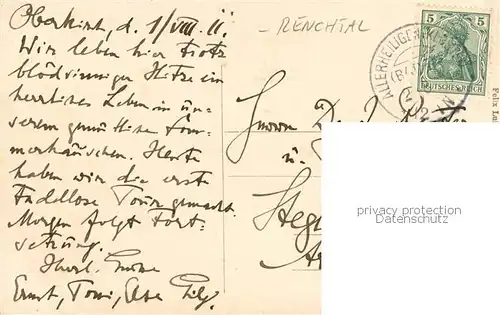 Oberkirch, d. 1/VIII. 11.
Wir leben hier trotz
blödsinniger Hitze ein
herrliches Leben in un-
serem gemütlichen Som-
merhäuschen. Heute
haben wir die erste
Tadellose Tour gemacht.
Morgen folgt Fort-
setzung.
Herzl. Grüße
Ernst, Toni, Else
RENCHTAL
ALLERHEILIGEN
5 5
DEUTSCHES REICH
Herrn
u.
Steg
privacy protection
Datenschutz
Felix